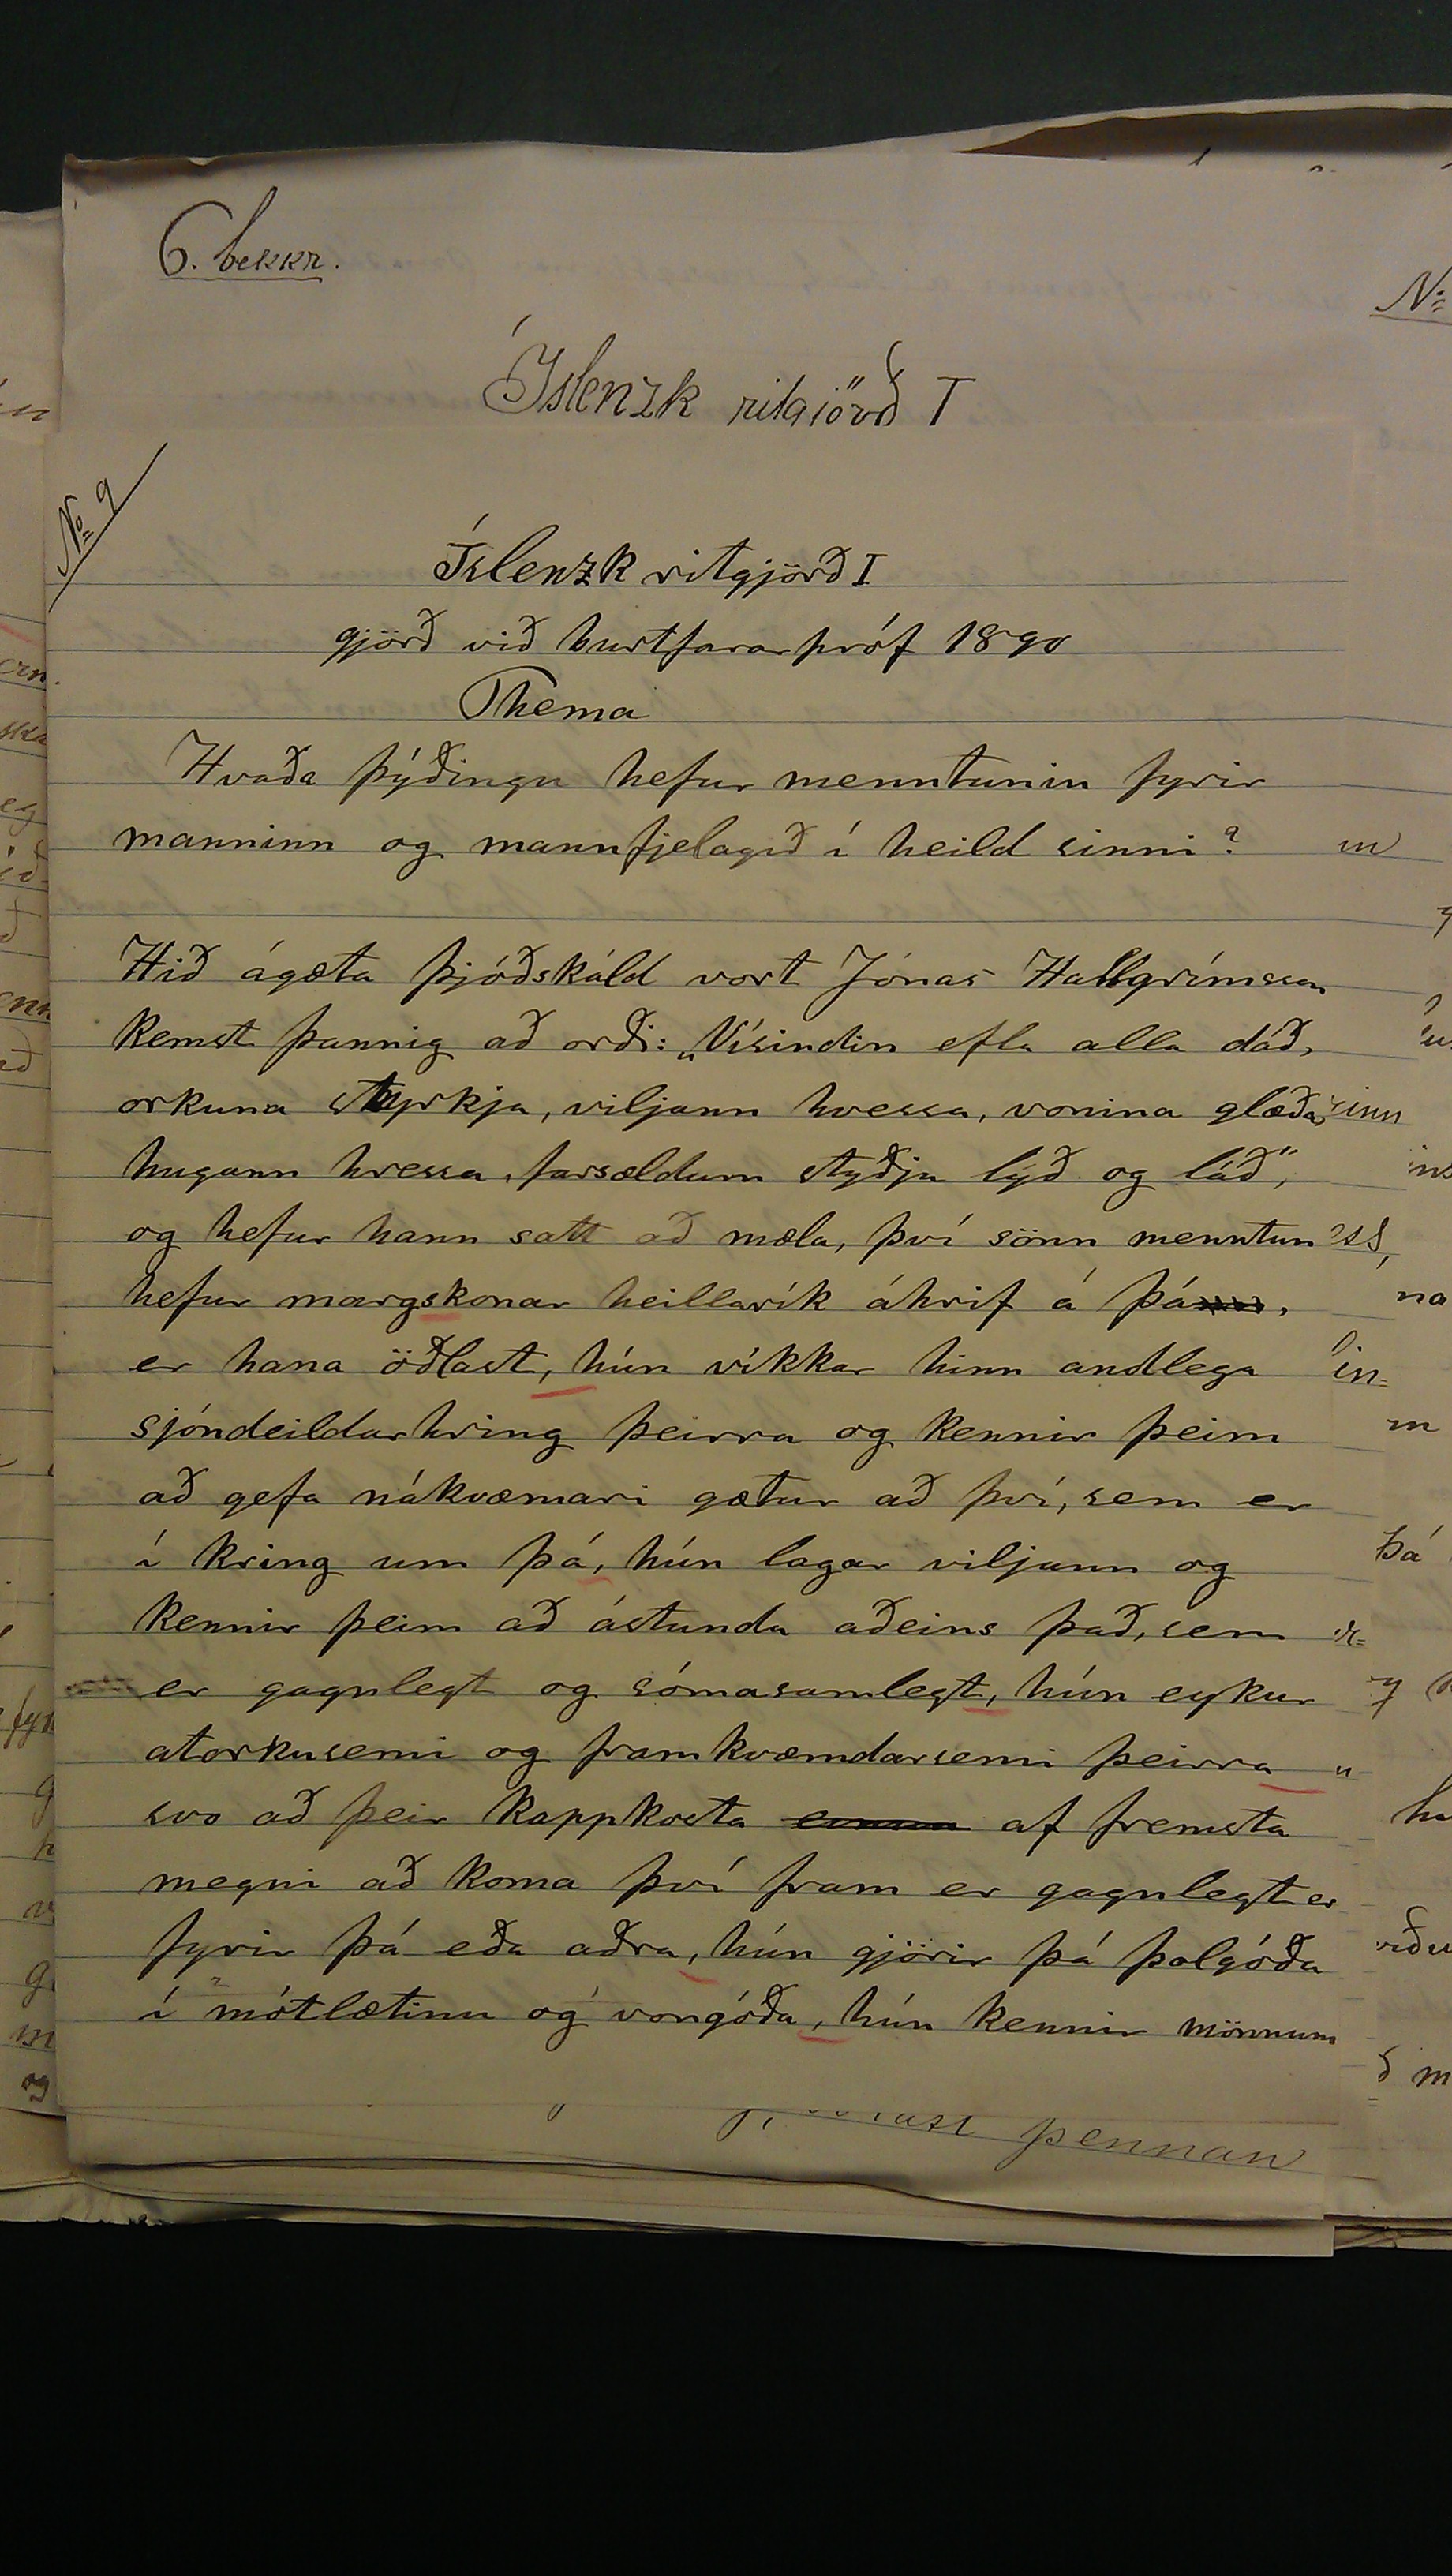 6. bekkr.
Íslenzk ritgjörð I
№ 9
Íslenzk ritgjörð I
gjörð við burtfararpróf 1890
Thema
Hvaða þýðingu hefur menntunin fyrir
manninn og mannfjelagið í heild sinni?
Hið ágæta þjóðskáld vort Jónas Hallgrímsson
kemst þannig að orði: „Vísindin efla alla dáð,
orkuna styrkja, viljann hvessa, vonina glæða,
hugann hressa, farsældum styðja lýð og láð“,
og hefur hann satt að mæla, því sönn menntun
hefur margskonar heillarík áhrif á þá,
er hana öðlast, hún víkkar hinn andlega
sjóndeildarhring þeirra og kennir þeim
að gefa nákvæmari gætur að því, sem er
í kring um þá, hún lagar viljann og
kennir þeim að ástunda aðeins það, sem
er gagnlegt og sómasamlegt, hún eykur
atorkusemi og framkvæmdarsemi þeirra
svo að þeir kappkosta af fremsta
megni að koma því fram er gagnlegt er
fyrir þá eða aðra, hún gjörir þá þolgóða
í mótlætinu og vongóða, hún kennir mönnum
þennan